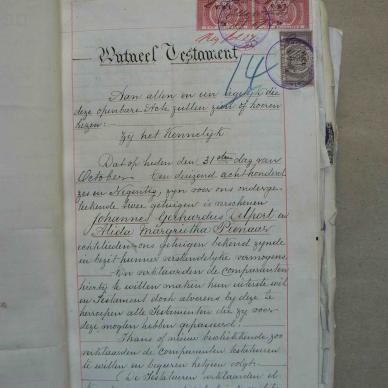 Mutueel Testament
14
Aan allen en een iegelijk die
deze openbare Acte zullen zien of hooren
lezen:
Zij het Kennelijk
Dat op heden den 31sten dag van
October Een duizend acht honderd
zes en Negentig, zijn voor ons onderge-
teekende twee getuigen is verschenen
Johannes Gerhardus Alport en
Alida Margrietha Pienaar
echtlieden ons getuigen bekend zijnde
in bezit hunner verstandelijke vermogens.
En verklaarden de comparanten
hierbij te willen maken hun uiterste wil
en Testament doch alvorens bij deze te
herroepen alle Testamenten die zij voor
deze mogten hebben gepasseerd.
Thans of nieuw beschikkende zoo
verklaarden de Comparanten testateuren
te willen en begeeren hetgeen volgt:
De Testateuren verklaarden el-